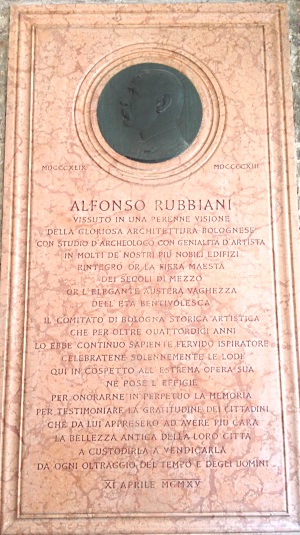 MDCCCXLIX MDCCCCXIII
ALFONSO RUBBIANI
VISSUTO IN UNA PERENNE VISIONE
DELLA GLORIOSA ARCHITETTURA BOLOGNESE
CON STUDIO D'ARCHEOLOGO CON GENIALITÀ D'ARTISTA
IN MOLTI DE' NOSTRI PIÙ NOBILI EDIFIZI
RINTEGRÒ OR LA FIERA MAESTÀ
DEI SECOLI DI MEZZO
OR L'ELEGANTE AUSTERA VAGHEZZA
DELL'ETÀ BENTIVOLESCA
IL COMITATO DI BOLOGNA STORICA ARTISTICA
CHE PER OLTRE QUATTORDICI ANNI
LO EBBE CONTINUO SAPIENTE FERVIDO ISPIRATORE
CELEBRATENE SOLENNEMENTE LE LODI
QUI IN COSPETTO ALL'ESTREMA OPERA SUA
NE POSE L'EFFIGIE
PER ONORARNE IN PERPETUO LA MEMORIA
PER TESTIMONIARE LA GRATITUDINE DEI CITTADINI
CHE DA LUI APPRESERO AD AVERE PIÙ CARA
LA BELLEZZA ANTICA DELLA LORO CITTÀ
A CUSTODIRLA A VENDICARLA
DA OGNI OLTRAGGIO DEL TEMPO E DEGLI UOMINI
XI APRILE MCMXV